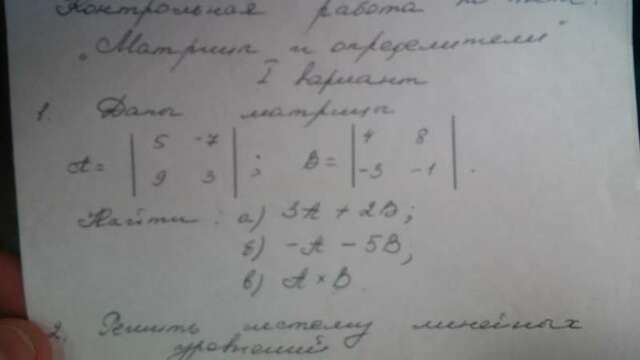 Контрольная работа по теме:
"Матрицы и определители"
I вариант
1. Дана матрица
5 -7 4 8
A= 9 3 ; B= -3 -1 .
Найти: а) 3A + 2B;
б) -A - 5B;
в) A × B
2. Решить систему линейных
уравнений